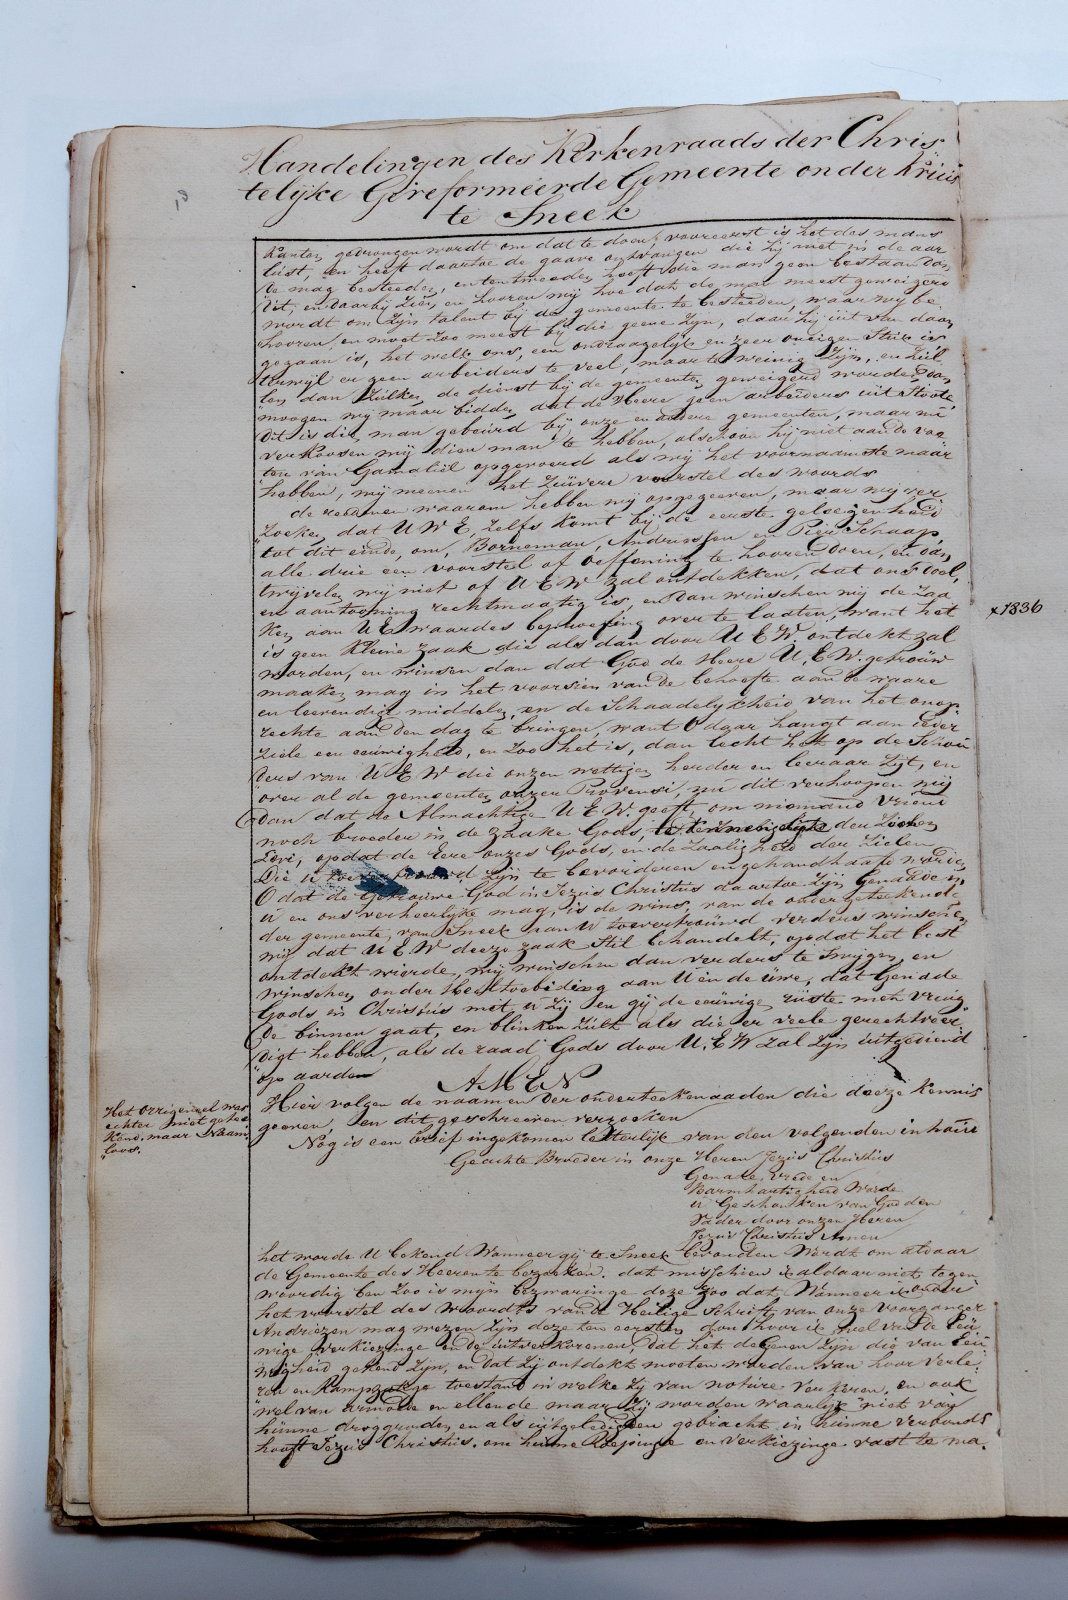 Handelingen des Kerkenraads der Chris
telijke Gereformeerde Gemeente onder Kruis
te Sneek
kanten gedrongen wordt om dat te doen, vooreerst is het des mans
lust, en heeft daartoe de gaave ontvangen die hij niet in de aar
de mag besteeden, en ten tweeden heeft die man geen bestaan dan
dit, en daarbij zien en hooren wij hoe dat de man meest geweigerd
wordt om zijn talent bij de gemeente te besteeden, waar wij be
hooren, en moet zoo meest bij die geene zijn, daar hij uit van daan
gegaan is, het welk ons, een ondraagelijk en zeer oneigen Stuk is
terwijl er geen arbeiders te veel, maar te weinig zijn, en zul
len dan zulken de dienst bij de gemeenten geweigerd worden, dan
moogen wij maar bidden dat de Heere geen arbeiders uit stoote,
dit is die man gebeurd bij onze en andere gemeenten, maar nu
verkoosen wij dien man te hebben, alschoon hij niet aan de voe
ten van Gamaliël opgevoed als wij het voornaamste maar
hebben, wij meenen het zuivere voorstel des woords
de redenen waarom hebben wij opgegeeven, maar wij ver
zoeken, dat U W E, zelfs komt bij de eerste geleegenheid
tot dit einde, om, Borneman, Andriessen en Pieu Schaap,
alle drie een voorstel of oeffening te hooren doen, en dan
twijvelen wij niet of U E W zal ontdekken, dat ons doel,
en aantooning rechtmaatig is, en dan winschen wij de zaa
ken aan U E waardes beproeving over te laaten, want het
is geen kleine zaak die als dan door U E W, ontdekt zal
worden, en winsen dan dat God de Heere U, E W. getrouw
maaken mag in het voorsien van de behoefte aan de waare
en leevendige middelen, en de schaadelijkheid van het onop
rechte aan den dag te bringen, want O daar hangt aan ieder
ziele een eeuwigheid, en zoo het is, dan lecht het op de schou
ders van U E W die onzen wettigen herder en leeraar zijt, en
over al de gemeenten onzer Provensi, nu dit verhoopen wij
dan dat de Almachtige U E W. geeft om niemand vriend
noch broeder in de zaake Gods, der Zoonen
Levi, opdat de Eere onzes Gods, en de Zaaligheid der Zielen
Die u toevertrouwd zijn te bevorderen en gehandhaafd worde,
O dat de getrouwe God in Jezus Christus daartoe zijn Genade in
u en ons verheerlijke mag, is de wins, van de ondergeteekende
der gemeente van Sneek aan U toevertrouwd verders winschen
wij dat U E W deeze zaak stil behandelt, opdat het best
ontdekt wierde, wij winschen dan verders te swijgen, en
winschen onder Heiltoebiding aan U en de uwe, dat Genade
Gods in Christus met u zij en gij de eeuwige ruste met vreug
de binnen gaat, en blinken zult als die er veele gerechtveer
digt hebben, als de raad Gods door U, E W zal zijn uitgediend
op aarden
AMEN
Hier volgen de naamen der onderteekenaaden die deeze kennis
geeven, en dit geschreeven verzoeken
Nog is een brief ingekomen letterlijk van den volgenden inhoud
Geachte Broeder in onze Heren Jezus Christus
Genade, vrede en
Barmhartigheid Worde
u Geschonken van God den
Vader door onzen Heeren
Jezus Christus Amen
het worde U bekend Wanneer gij te Sneek bevonden Wordt om aldaar
de Gemeente des Heeren te bezoeken. dat misschien ik aldaar niet tegen
woordig ben zoo is mijn bezwaringe deze zoo dat Wanneer ik onder
het voorstel des Woordts van de Heilige Schrift van onze voorganger
Andriezen mag wezen zijn deze ten eersten, dan hoor ik wel van de Eeu
wige verkiezinge en de uitverkorenen, dat het degenen zijn die van Eeu
wigheid gekend zijn, en dat zij ontdekt moeten worden van hoor verlo
ren en Rampzalige toestand in welke zij van nature verkeren, en ook
wel van armoede en ellende maar zij worden waarlijk niet van
hunne droggronden en als uitgeledigden gebracht in hunne verbonds
hooft Jezus Christus. om hunne Roepinge en verkiezinge vast te ma.
Het orrigeneel was
echter niet getee
kend, maar Naam
loos.
x 1836